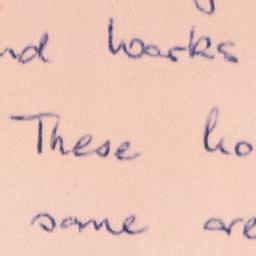 nd works
These ho
some are